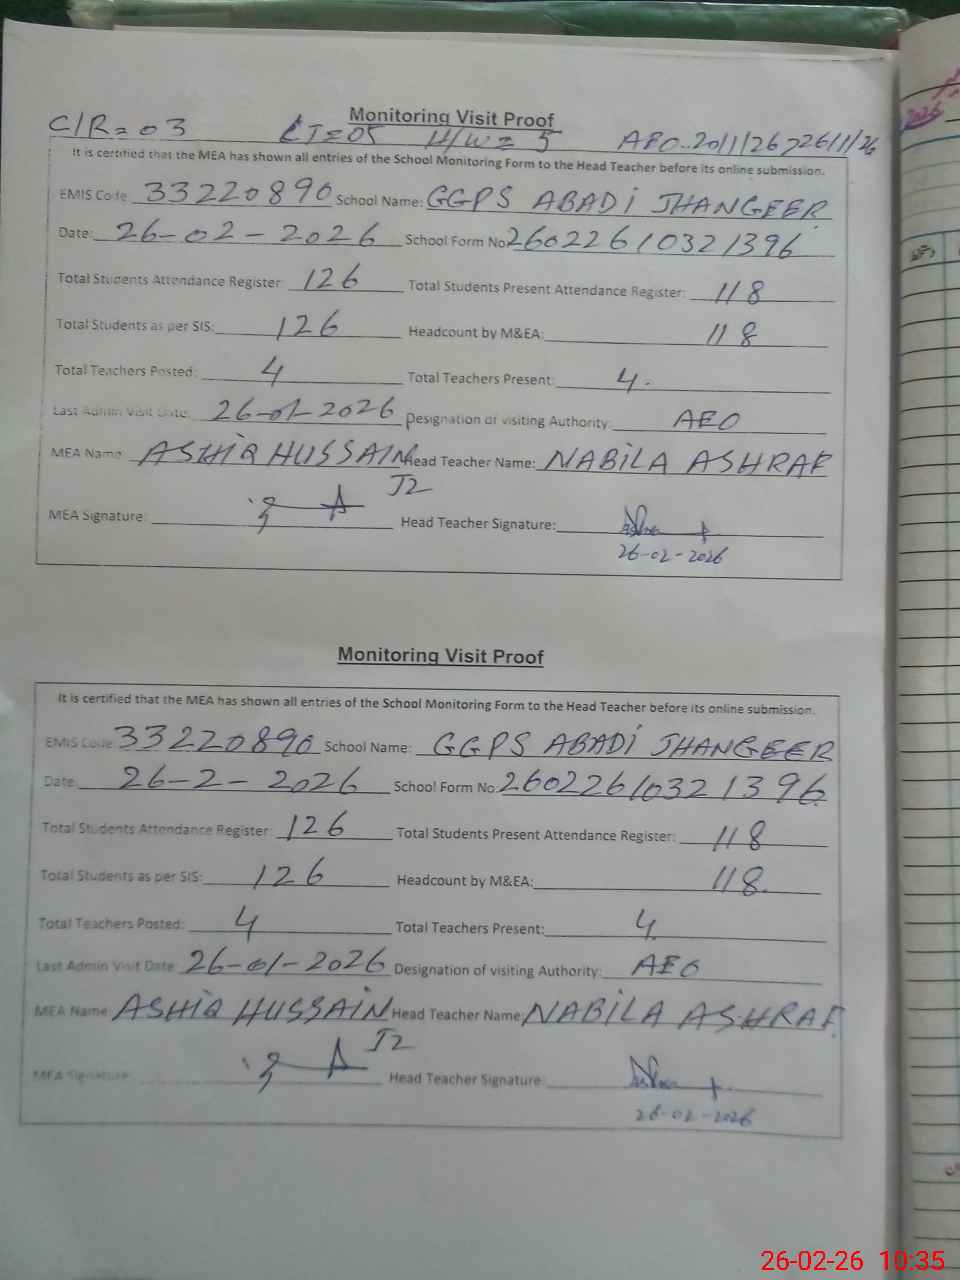 Monitoring Visit Proof
C/R = 03 LT = 05 H/W = 5 AEO 20/1/26 > 26/1/26
It is certified that the MEA has shown all entries of the School Monitoring Form to the Head Teacher before its online submission.
EMIS Code 33220890 School Name: GGPS ABADI JHANGEER
Date: 26-02-2026 School Form No 26022610321396
Total Students Attendance Register: 126 Total Students Present Attendance Register: 118
Total Students as per SIS: 126 Headcount by M&EA: 118
Total Teachers Posted: 4 Total Teachers Present: 4.
Last Admin Visit Date: 26-01-2026 Designation of visiting Authority: AEO
MEA Name: ASHIQ HUSSAIN Head Teacher Name: NABILA ASHRAF
MEA Signature: J2 Head Teacher Signature:
26-02-2026
Monitoring Visit Proof
It is certified that the MEA has shown all entries of the School Monitoring Form to the Head Teacher before its online submission.
EMIS Code: 33220890 School Name: GGPS ABADI JHANGEER
Date: 26-2-2026 School Form No: 26022610321396
Total Students Attendance Register: 126 Total Students Present Attendance Register: 118
Total Students as per SIS: 126 Headcount by M&EA: 118.
Total Teachers Posted: 4 Total Teachers Present: 4
Last Admin Visit Date: 26-01-2026 Designation of visiting Authority: AEO
MEA Name: ASHIQ HUSSAIN Head Teacher Name: NABILA ASHRAF
MEA Signature: J2 Head Teacher Signature:
26-02-2026
2026
26-02-26 10:35